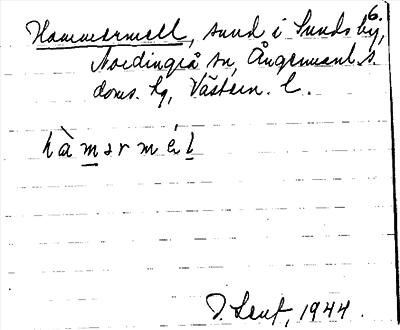 6.
Hammermell, sund i Sunds by,
Nordingrå sn, Ångermanl. s.
doms. hg, Västern. l.
hàmərmél
1944